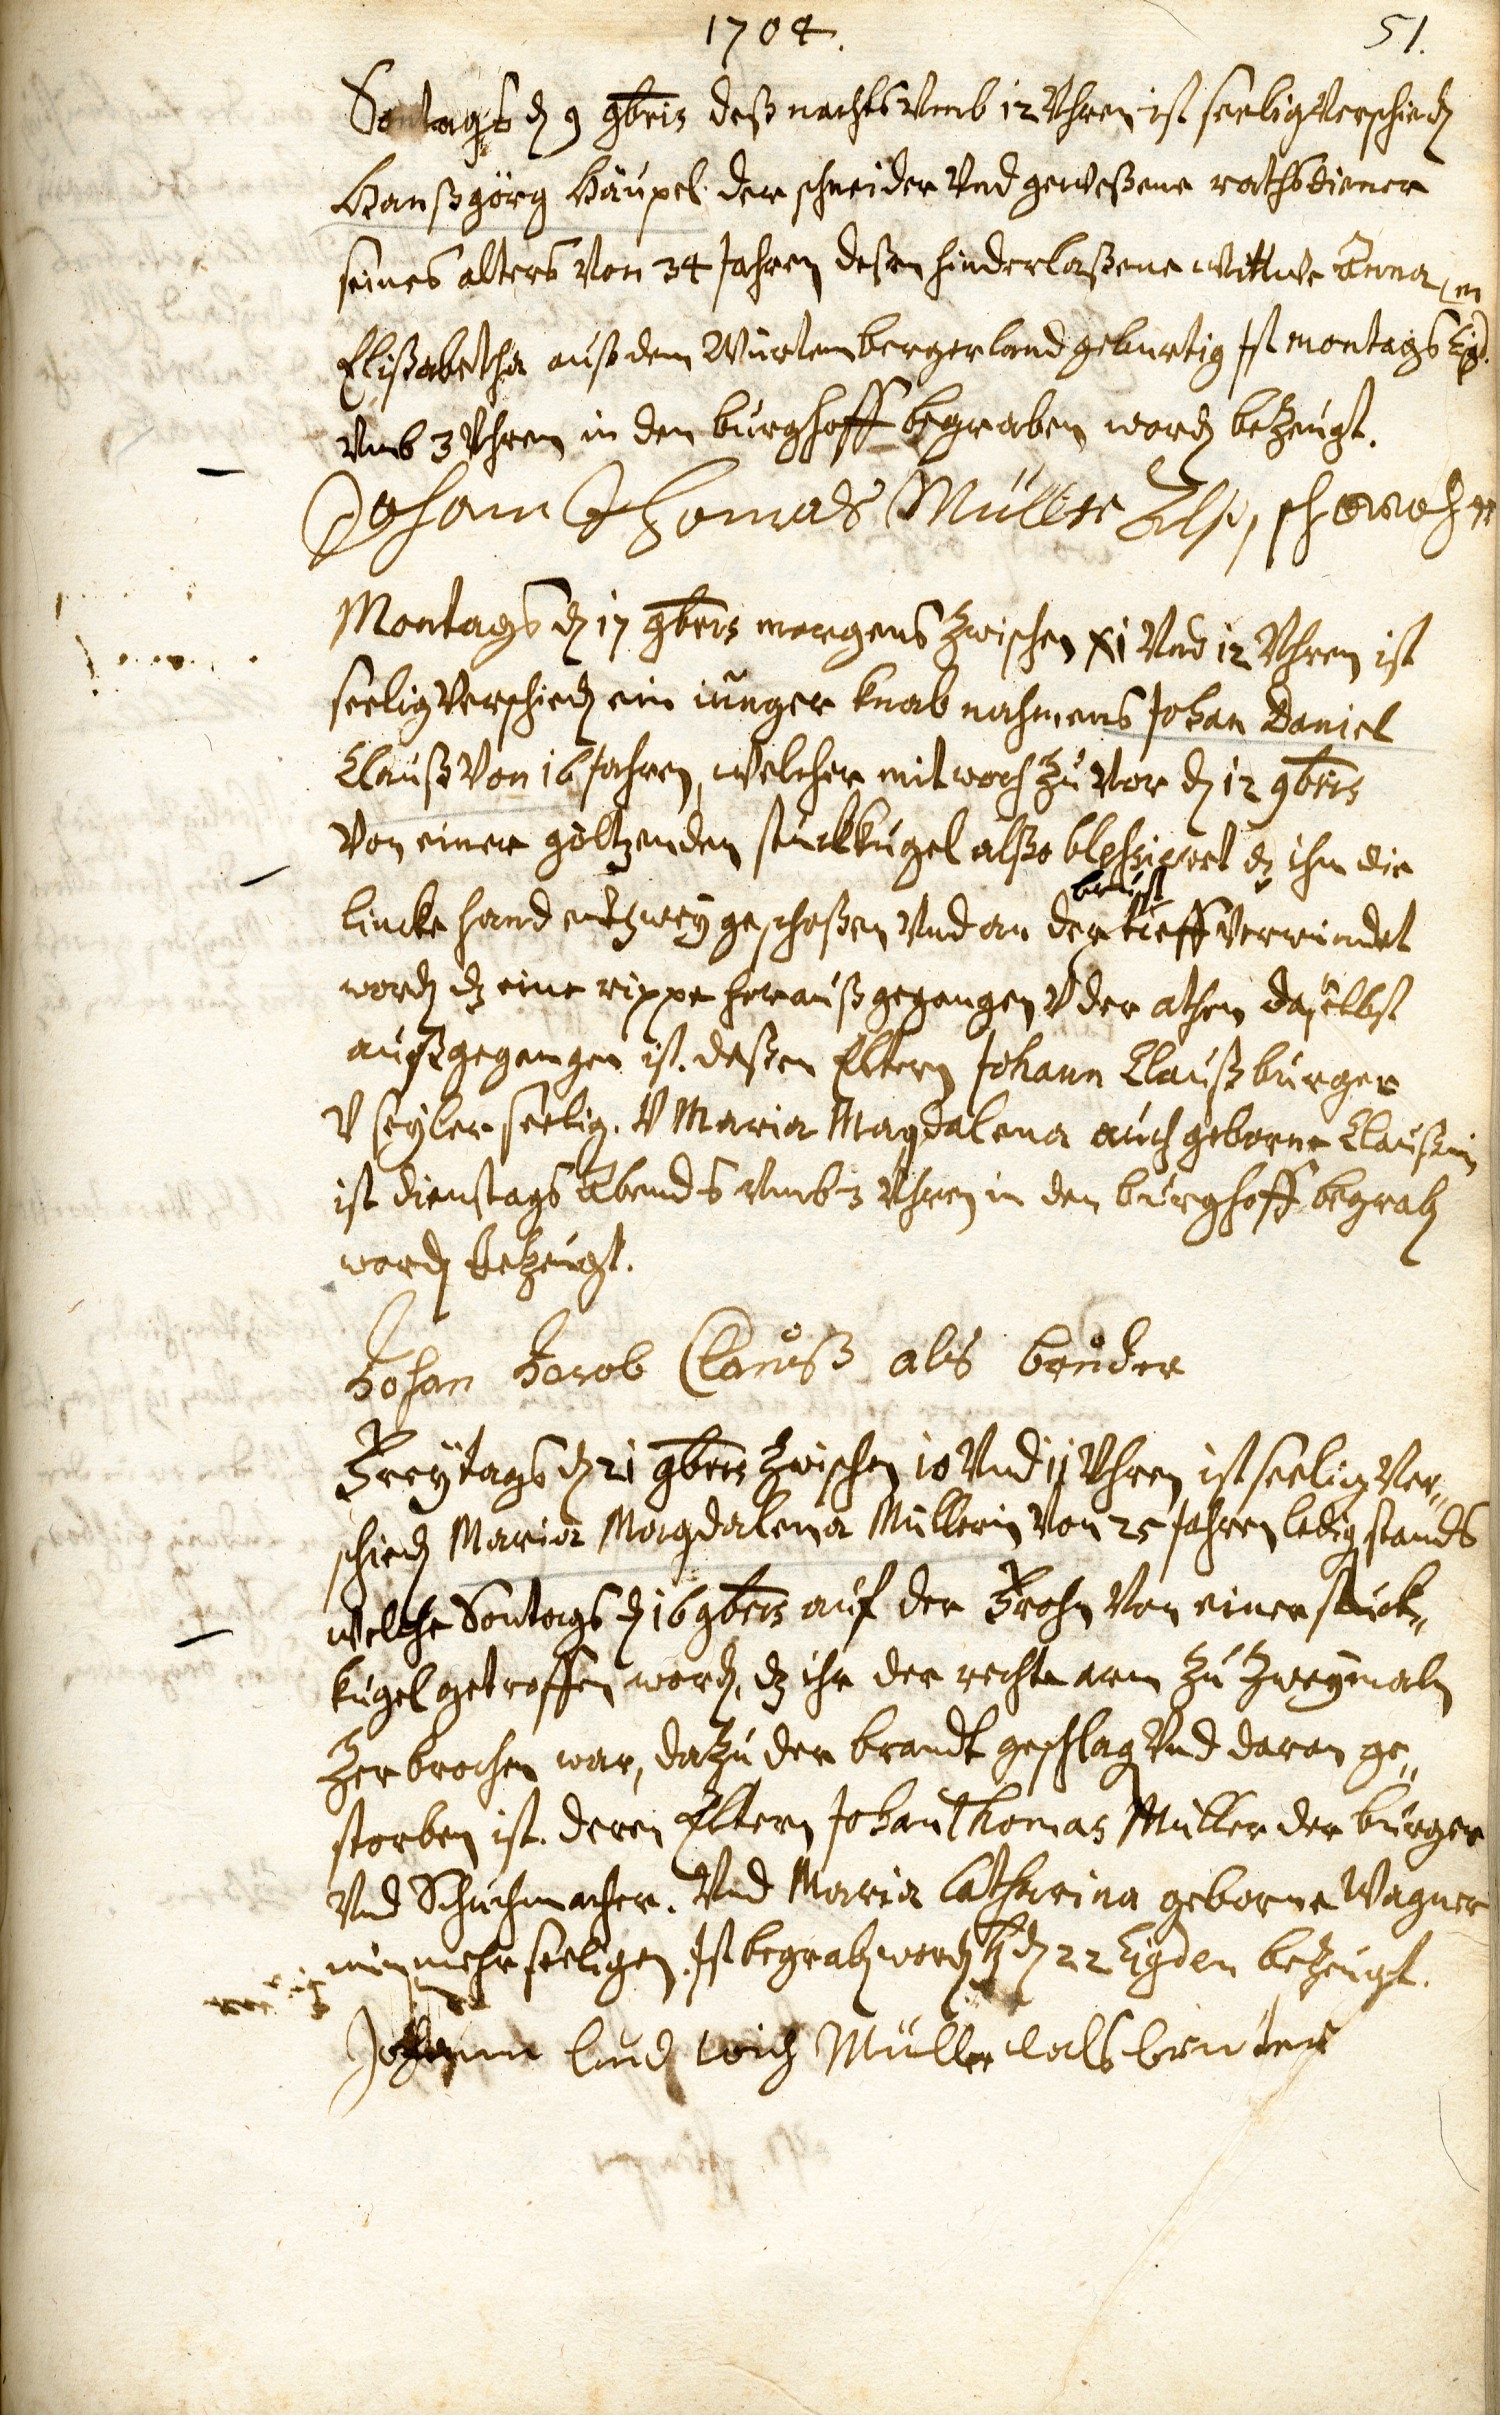 1704.
51.
Sontags d. 9 9bris deß nachts Vmb 12 Vhren ist seelig Verschied.
Hanßgörg Häupel der schneider Vnd geweßene rathsdiener
seines alters Von 34 Jahren deßen hinderlaßene wittwe Anna
Elißabetha auß dem Würtembergerland geburtig Ist montags
Vmb 3 Vhren in den burghoff begraben word. bezeugt.
Johann Thomas Müller Als
Montags d. 17 9bris morgens zwischen XI Vnd 12 Vhren ist
seelig Verschied. ein iunger knab nahmens Johan Daniel
Clauß Von 16 Jahren, welcher mitwoch zu Vor d. 12 9bris
Von einer stuckkugel alßo blessiret dz ihm die
lincke hand entzwey geschoßen Vnd an der brust tieff Verwundet
word. dz eine rippe heraußgegangen V der athem daselbst
außgegangen ist. deßen Eltern Johann Clauß burger
V seyler seelig. V Maria Magdalena auch geborne Claußin
ist dienstags Abends Vmb 3 Vhren in den burghoff begrab.
word. bezeugt.
Johan Jacob Clauß als bruder
Freÿtags d. 21 9bris zwischen 10 Vnd 11 Vhren ist seelig Ver„
schied. Maria Magdalena Müllerin Von 25 Jahren ledig stands
welche Sontags d. 16 9bris auf der Frohn Von einer stuck„
kugel getroffen word. dz ihr der rechte arm zu zweÿmaln
zerbrochen war, dazu der brandt geschlag. Vnd daran ge„
storben ist. deren Eltern Johan Thomas Müller der burger
Vnd Schuchmacher. Vnd Maria Catharina geborne Wagner
nunmehr seeligen. Ist begrab. word. d. 22 Eijsden bezeugt.
Johann Lud wich Müller als bruter